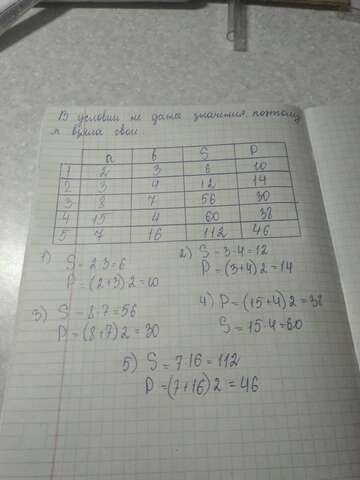 В условии не даны значения, поэтому
я взяла свои.
a b S P
1 2 3 6 10
2 3 4 12 14
3 8 7 56 30
4 15 4 60 38
5 7 16 112 46
1) S = 2·3=6
P = (2+3)2=10
2) S = 3·4=12
P = (3+4)2=14
3) S = 8·7=56
P = (8+7)2=30
4) P = (15+4)2=38
S = 15·4=60
5) S = 7·16=112
P = (7+16)2=46